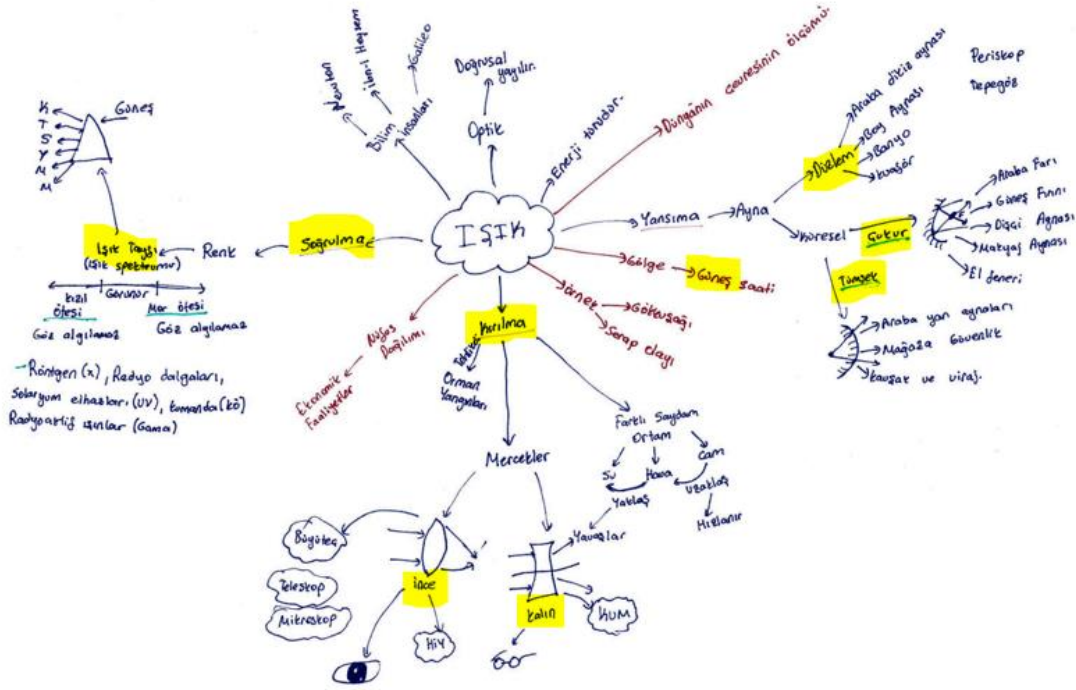 IŞIK
Bilim
insanları
Newton
İbn-i Heysem
Galileo
Optik
Doğrusal
yayılır.
Enerji türüdür.
Dünyanın çevresinin ölçümü.
Yansıma
Ayna
Düzlem
Araba dikiz aynası
Boy Aynası
Banyo
kuaför
Periskop
Tepegöz
Küresel
Çukur
Araba Farı
Güneş Fırını
Dişçi Aynası
Makyaj Aynası
El feneri
Tümsek
Araba yan aynaları
Mağaza Güvenlik
kavşak ve viraj.
Gölge
Güneş saati
Örnek
Gökkuşağı
Serap olayı
Kırılma
Orman
Yangınları
Farklı Saydam
Ortam
Su
Hava
Cam
Yaklaş
Uzaklaş
Yavaşlar
Hızlanır
Mercekler
İnce
Büyüteç
Teleskop
Mikroskop
HİY
kalın
KUM
Nüfus
Dağılımı
Ekonomik
Faaliyetler
Soğrulma
Renk
Işık Tayfı
(ışık spektrumu)
Güneş
K
T
S
Y
M
M
kızıl
ötesi
Görünür
Mor ötesi
Göz algılamaz
Göz algılamaz
- Röntgen (x), Radyo dalgaları,
Solaryum cihazları (UV), kumanda (kö)
Radyoaktif ışınlar (Gama)